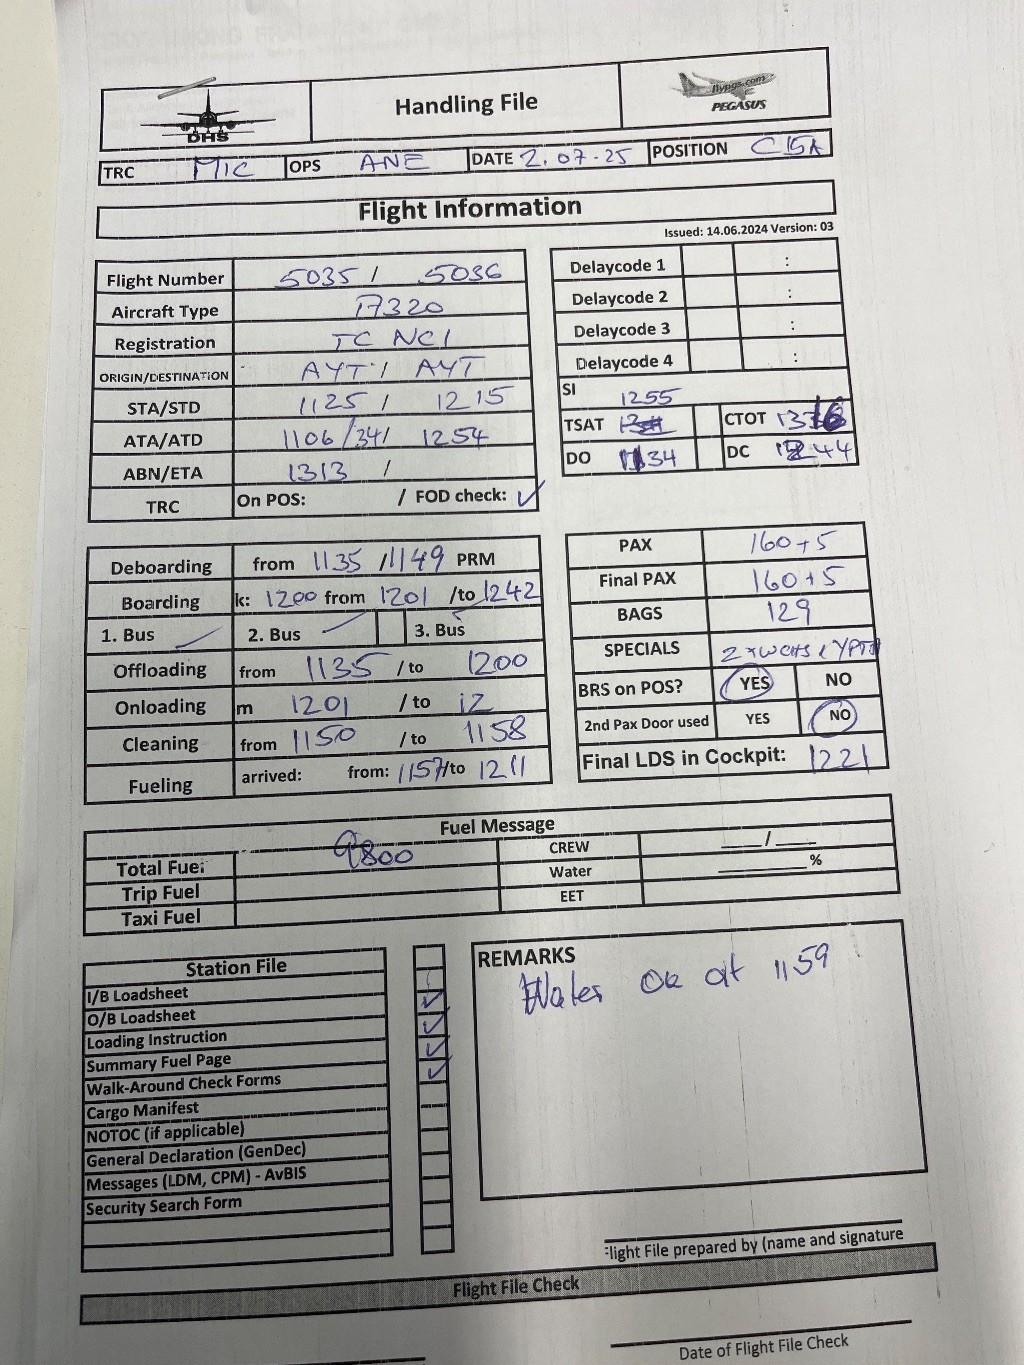 DHS
Handling File
flypgs.com
PEGASUS
TRC MIC OPS ANE DATE 2.07-25 POSITION C15A
Flight Information
Issued: 14.06.2024 Version: 03
Flight Number 5035 / 5036
Aircraft Type 7320
Registration TC NCI
ORIGIN/DESTINATION AYT / AYT
STA/STD 1125 / 1215
ATA/ATD 1106/34/ 1254
ABN/ETA 1313 /
TRC On POS: / FOD check: ✓
Delaycode 1 :
Delaycode 2 :
Delaycode 3 :
Delaycode 4 :
SI
1255
TSAT CTOT 1316
DO 1134 DC 1244
Deboarding from 1135 /1149 PRM
Boarding k: 1200 from 1201 /to 1242
1. Bus 2. Bus 3. Bus
Offloading from 1135 /to 1200
Onloading m 1201 / to 12
Cleaning from 1150 / to 1158
Fueling arrived: from: 1157/to 1211
PAX 160+5
Final PAX 160+5
BAGS 129
SPECIALS 2xWCHS
BRS on POS? YES NO
2nd Pax Door used YES NO
Final LDS in Cockpit: 1221
Fuel Message
Total Fuel 9800 CREW ___/___
Trip Fuel Water ______%
Taxi Fuel EET
Station File
I/B Loadsheet
O/B Loadsheet ✓
Loading Instruction ✓
Summary Fuel Page ✓
Walk-Around Check Forms ✓
Cargo Manifest
NOTOC (if applicable)
General Declaration (GenDec)
Messages (LDM, CPM) - AvBIS
Security Search Form
REMARKS
Water Ok at 1159
Flight File prepared by (name and signature
Flight File Check
Date of Flight File Check